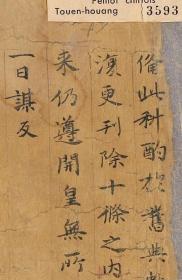 Pelliot chinois
Touen-houang 3593
備此科酌於舊典
演更刊除十條之内
来仍遵開皇無所
一曰謀反